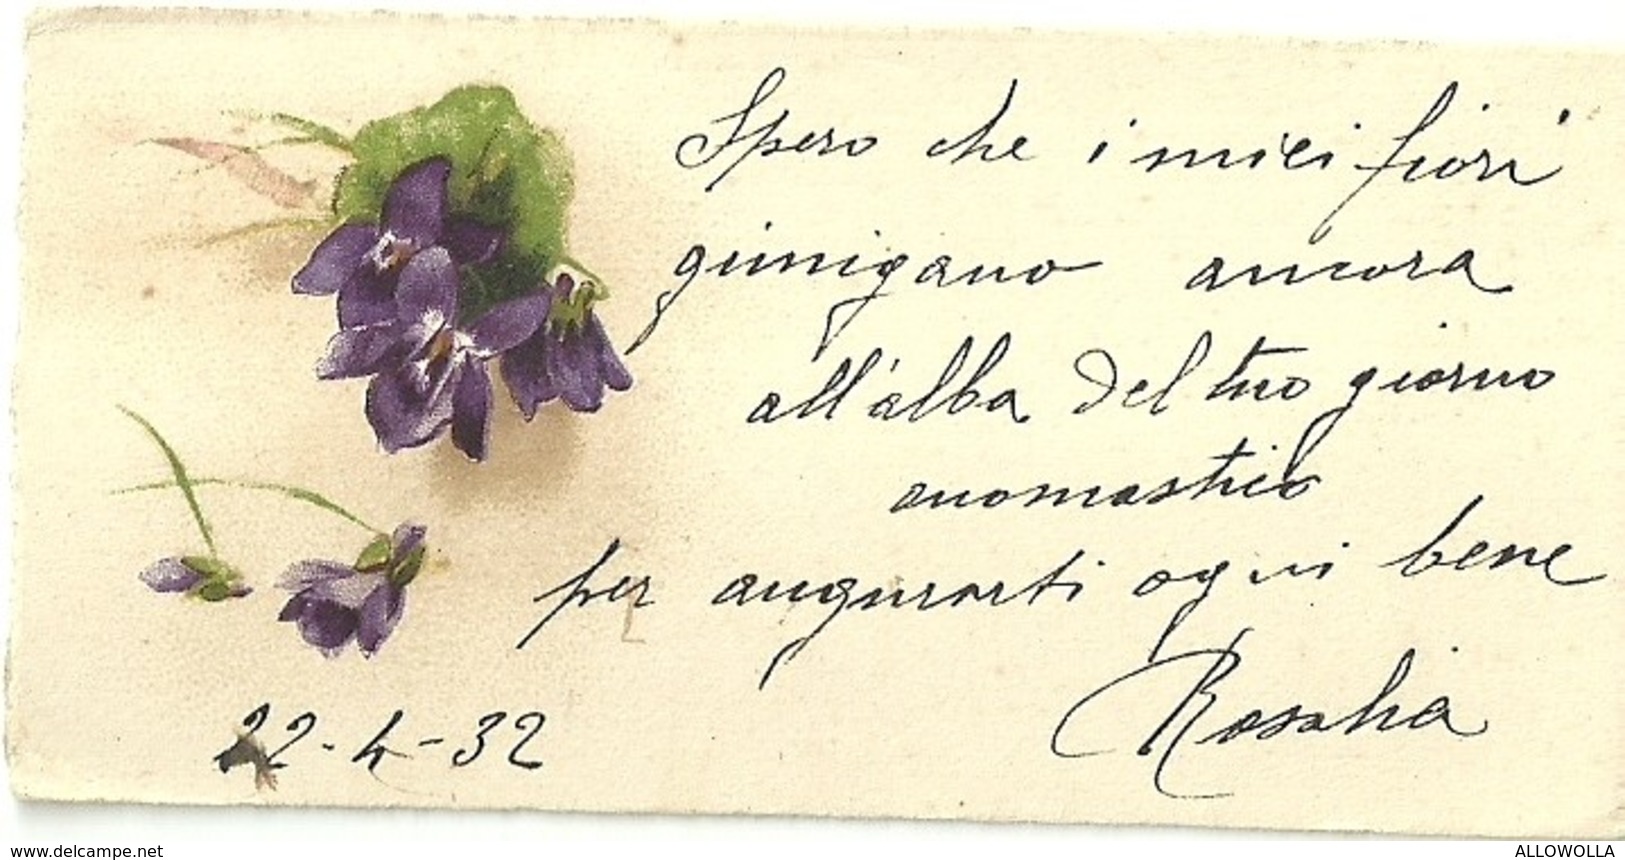 Spero che i miei fiori
giungano ancora
all'alba del tuo giorno
onomastico
per augurarti ogni bene
Rosalia
22-4-32
www.delcampe.net
ALLOWOLLA